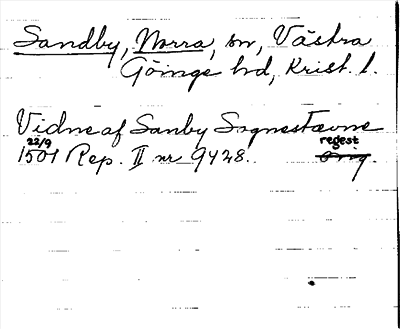 Sandby, Norra, sn, Västra
Göinge hd, Krist. l.
Vidne af Sanby Sognestævne
22/9 regest
1501 Rep. II nr 9428. orig.